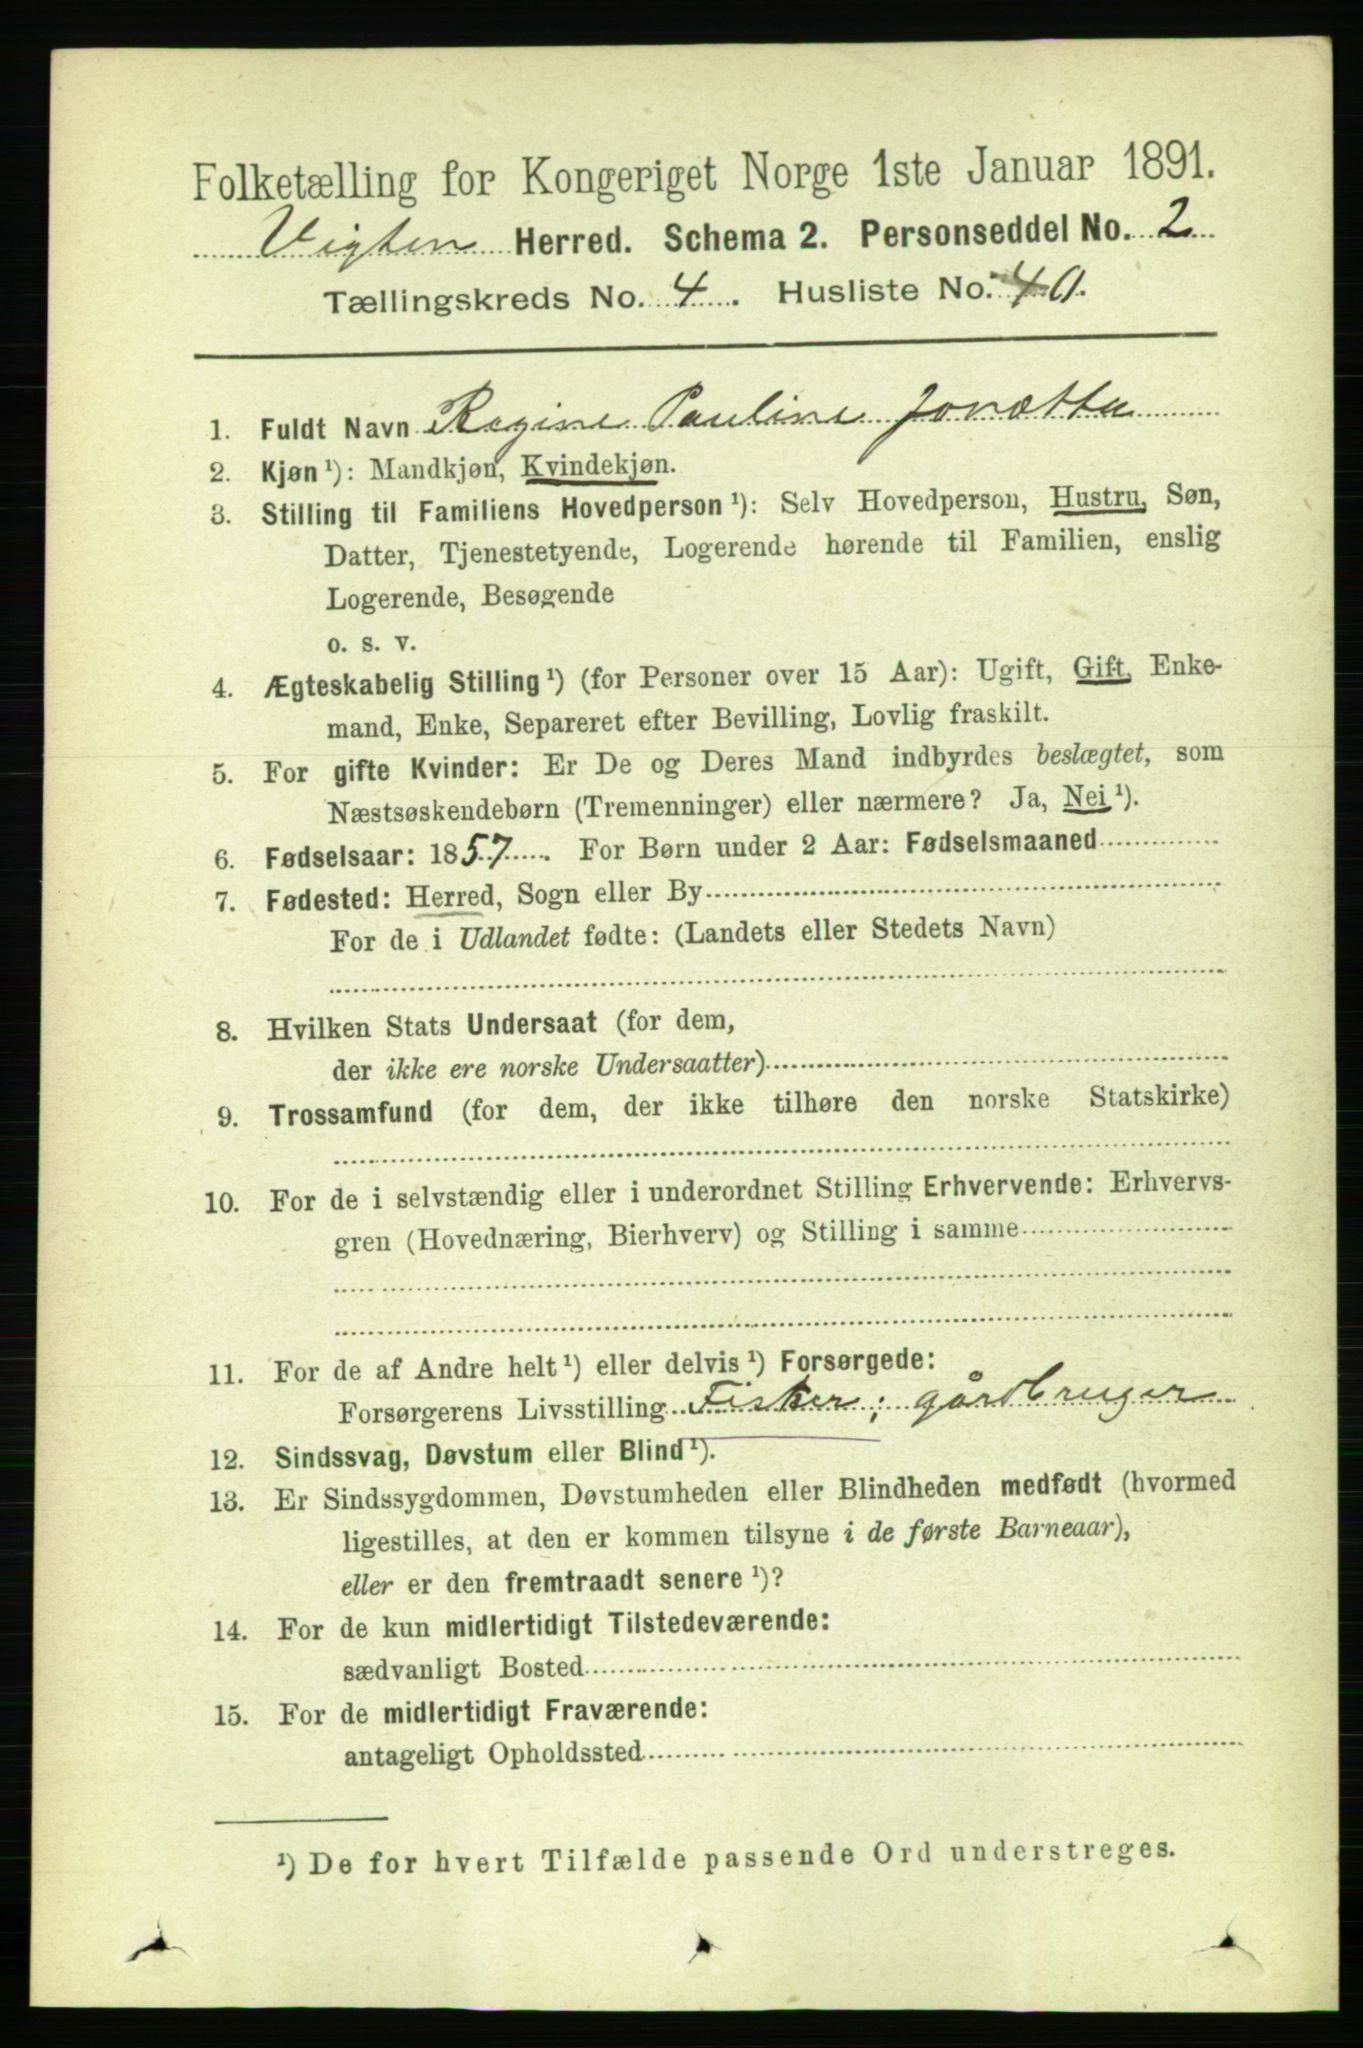 Folketælling for Kongeriget Norge 1ste Januar 1891.
Vigten Herred. Schema 2. Personseddel No. 2
Tællingskreds No. 4. Husliste No. 40.
1. Fuldt Navn Regine Pauline Jonetta
2. Kjøn ¹): Mandkjøn, Kvindekjøn.
3. Stilling til Familiens Hovedperson ¹): Selv Hovedperson, Hustru, Søn,
Datter, Tjenestetyende, Logerende hørende til Familien, enslig
Logerende, Besøgende
o. s. v.
4. Ægteskabelig Stilling ¹) (for Personer over 15 Aar): Ugift, Gift, Enke-
mand, Enke, Separeret efter Bevilling, Lovlig fraskilt.
5. For gifte Kvinder: Er De og Deres Mand indbyrdes beslægtet, som
Næstsøskendebørn (Tremenninger) eller nærmere? Ja, Nei ¹).
6. Fødselsaar: 1857. For Børn under 2 Aar: Fødselsmaaned
7. Fødested: Herred, Sogn eller By
For de i Udlandet fødte: (Landets eller Stedets Navn)
8. Hvilken Stats Undersaat (for dem,
der ikke ere norske Undersaatter)
9. Trossamfund (for dem, der ikke tilhøre den norske Statskirke)
10. For de i selvstændig eller i underordnet Stilling Erhvervende: Erhvervs-
gren (Hovednæring, Bierhverv) og Stilling i samme
11. For de af Andre helt ¹) eller delvis ¹) Forsørgede:
Forsørgerens Livsstilling Fisker; gårdbruger
12. Sindssvag, Døvstum eller Blind ¹).
13. Er Sindssygdommen, Døvstumheden eller Blindheden medfødt (hvormed
ligestilles, at den er kommen tilsyne i de første Barneaar),
eller er den fremtraadt senere ¹)?
14. For de kun midlertidigt Tilstedeværende:
sædvanligt Bosted
15. For de midlertidigt Fraværende:
antageligt Opholdssted
¹) De for hvert Tilfælde passende Ord understreges.